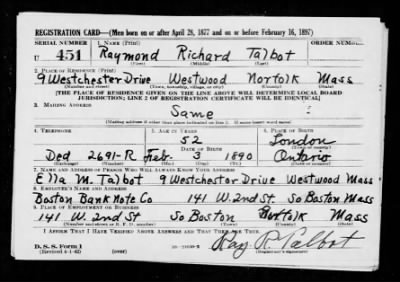 REGISTRATION CARD—(Men born on or after April 28, 1877 and on or before February 16, 1897)
SERIAL NUMBER 1. NAME (Print)
U 451 Raymond Richard Talbot
(First) (Middle) (Last)
2. PLACE OF RESIDENCE (Print)
9 Westchester Drive Westwood Norfolk Mass
(Number and street) (Town, township, village, or city) (County) (State)
[THE PLACE OF RESIDENCE GIVEN ON THE LINE ABOVE WILL DETERMINE LOCAL BOARD
JURISDICTION; LINE 2 OF REGISTRATION CERTIFICATE WILL BE IDENTICAL]
3. MAILING ADDRESS
Same
[Mailing address if other than place indicated on line 2. If same insert word same]
4. TELEPHONE 5. AGE IN YEARS 6. PLACE OF BIRTH
52 London
DATE OF BIRTH
Ded 2691-R Feb. 3 1890 Ontario
(Exchange) (Number) (Mo.) (Day) (Yr.) (State or country)
7. NAME AND ADDRESS OF PERSON WHO WILL ALWAYS KNOW YOUR ADDRESS
Ella M. Talbot 9 Westchester Drive Westwood Mass
8. EMPLOYER'S NAME AND ADDRESS
Boston Bank Note Co 141 W. 2nd St. So Boston Mass
9. PLACE OF EMPLOYMENT OR BUSINESS
141 W. 2nd St So Boston Mass
(Number and street or R. F. D. number) (Town) (County) (State)
I AFFIRM THAT I HAVE VERIFIED ABOVE ANSWERS AND THAT THEY ARE TRUE.
D. S. S. Form 1
(Revised 4-1-42) (over)
Ray R. Talbot
(Registrant's signature)